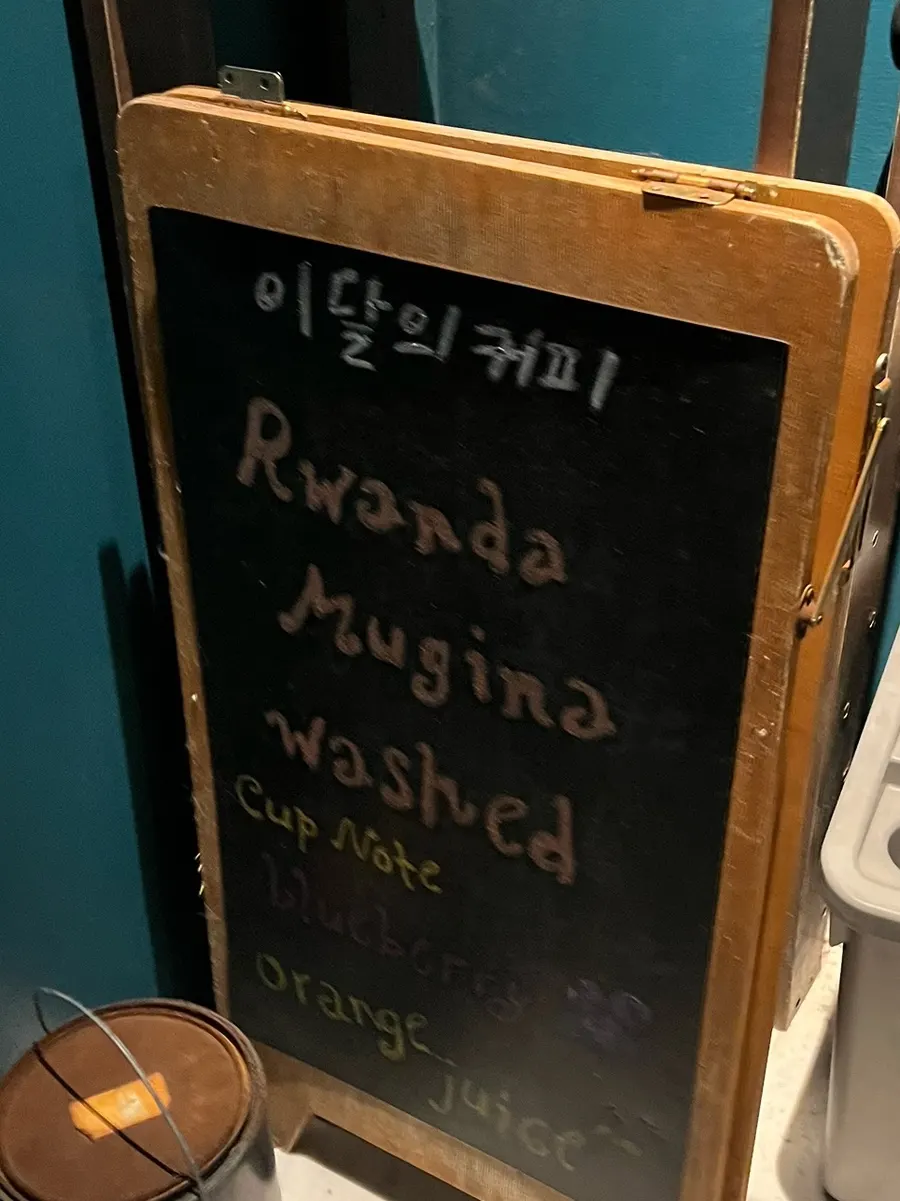 이달의 커피
Rwanda
Mugina
washed
Cup Note
blueberry
Orange
juice